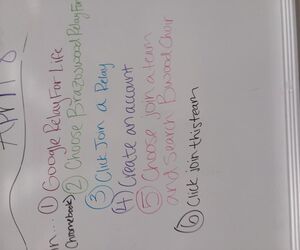 April 8
in... ① Google Relay For Life
(chromebook) ② Choose Brazoswood Relay For
③ Click Join a Relay
④ Create an account
⑤ Choose join a team
and search Bwood Choir
⑥ Click join this team